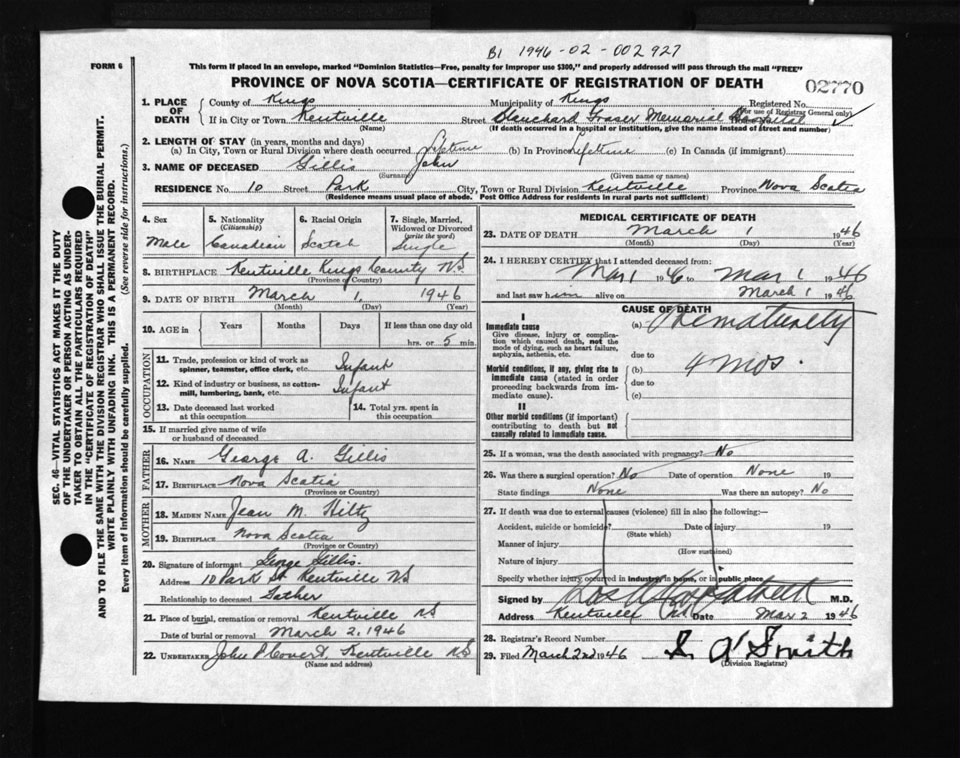 B1 1946-02-002927
FORM 6
This form if placed in an envelope, marked "Dominion Statistics—Free, penalty for improper use $300," and properly addressed will pass through the mail "FREE"
PROVINCE OF NOVA SCOTIA—CERTIFICATE OF REGISTRATION OF DEATH
02770
SEC. 46—VITAL STATISTICS ACT MAKES IT THE DUTY
OF THE UNDERTAKER OR PERSON ACTING AS UNDER-
TAKER TO OBTAIN ALL THE PARTICULARS REQUIRED
IN THE "CERTIFICATE OF REGISTRATION OF DEATH"
AND TO FILE THE SAME WITH THE DIVISION REGISTRAR WHO SHALL ISSUE THE BURIAL PERMIT.
WRITE PLAINLY WITH UNFADING INK. THIS IS A PERMANENT RECORD.
Every item of information should be carefully supplied. (See reverse side for instructions.)
1. PLACE OF DEATH
County of Kings Municipality of Kings Registered No.
(For use of Registrar General only)
If in City or Town Kentville Street Blanchard Fraser Memorial Hospital
(Name) (If death occurred in a hospital or institution, give the name instead of street and number)
2. LENGTH OF STAY (in years, months and days)
(a) In City, Town or Rural Division where death occurred Lifetime (b) In Province Lifetime (c) In Canada (if immigrant)
3. NAME OF DECEASED Gillis John
(Surname) (Given name or names)
RESIDENCE No. 10 Street Park City, Town or Rural Division Kentville Province Nova Scotia
(Residence means usual place of abode. Post Office Address for residents in rural parts not sufficient)
4. Sex
Male
5. Nationality
(Citizenship)
Canadian
6. Racial Origin
Scotch
7. Single, Married,
Widowed or Divorced
(write the word)
Single
8. BIRTHPLACE Kentville Kings County N.S
(Province or Country)
9. DATE OF BIRTH March 1, 1946
(Month) (Day) (Year)
10. AGE in
Years Months Days If less than one day old
hrs. or 5 min.
OCCUPATION
11. Trade, profession or kind of work as
spinner, teamster, office clerk, etc. Infant
12. Kind of industry or business, as cotton-
mill, lumbering, bank, etc. Infant
13. Date deceased last worked
at this occupation
14. Total yrs. spent in
this occupation
15. If married give name of wife
or husband of deceased
FATHER
16. NAME George A. Gillis
17. BIRTHPLACE Nova Scotia
(Province or Country)
MOTHER
18. MAIDEN NAME Jean M. Hiltz
19. BIRTHPLACE Nova Scotia
(Province or Country)
20. Signature of informant George Gillis.
Address 10 Park St. Kentville NS
Relationship to deceased Father
21. Place of burial, cremation or removal Kentville N.S
Date of burial or removal March 2, 1946
22. UNDERTAKER John P Covert, Kentville N.S
(Name and address)
MEDICAL CERTIFICATE OF DEATH
23. DATE OF DEATH March 1 1946
(Month) (Day) (Year)
24. I HEREBY CERTIFY that I attended deceased from:
Mar 1 1946 to Mar 1 1946
and last saw him alive on March 1 1946
CAUSE OF DEATH
I
Immediate cause
Give disease, injury or complica-
tion which caused death, not the
mode of dying, such as heart failure,
asphyxia, asthenia, etc.
(a) Prematurity
due to
Morbid conditions, if any, giving rise to
immediate cause (stated in order
proceeding backwards from im-
mediate cause).
(b) 4 mos.
due to
(c)
II
Other morbid conditions (if important)
contributing to death but not
causally related to immediate cause.
25. If a woman, was the death associated with pregnancy? No
26. Was there a surgical operation? No Date of operation None 19
State findings None Was there an autopsy? No
27. If death was due to external causes (violence) fill in also the following:—
Accident, suicide or homicide? Date of injury 19
(State which)
Manner of injury
(How sustained)
Nature of injury
Specify whether injury occurred in industry, in home, or in public place
Signed by M.D.
Address Kentville Date Mar 2 1946
28. Registrar's Record Number
29. Filed March 2nd 1946 S. A Smith
(Division Registrar)